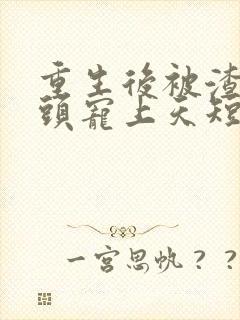 重生後被渣
頭寵上天短
一宮思帆？？